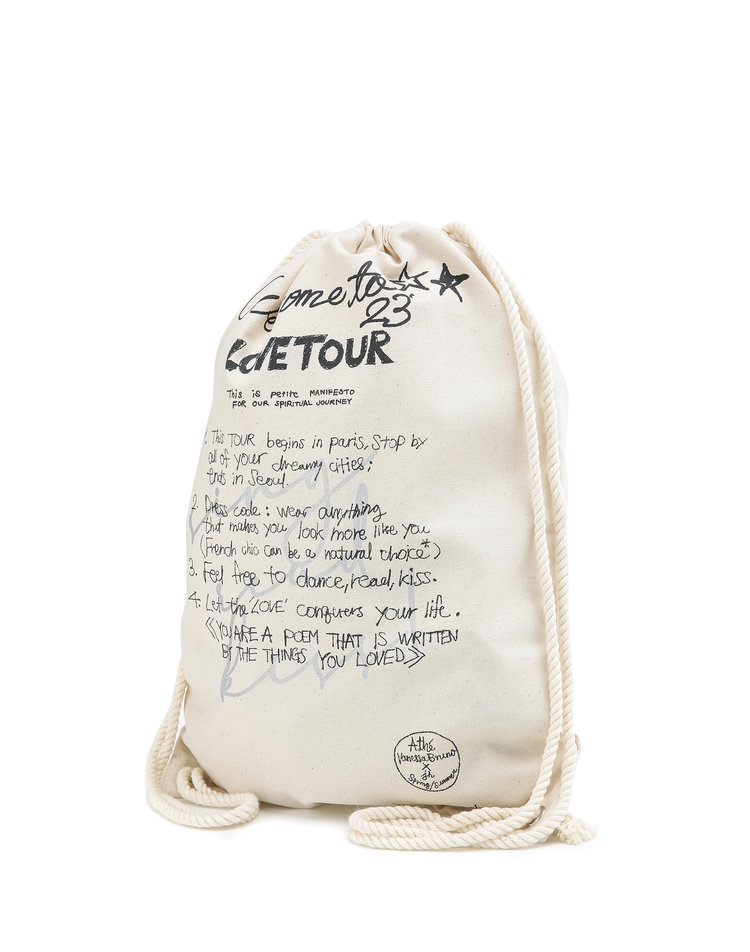 Come to
23
LOVE TOUR
This is petite MANIFESTO
FOR OUR SPIRITUAL JOURNEY
1. This TOUR begins in paris, Stop by
all of your dreamy cities;
ends in Seoul.
2. Dress code: wear anything
that makes you look more like you
(French chic can be a natural choice*)
3. Feel free to dance, read, kiss.
4. Let the 'LOVE' conquers your life.
《YOU ARE A POEM THAT IS WRITTEN
BY THE THINGS YOU LOVED》
Athé
Vanessa Bruno
×
Spring/Summer